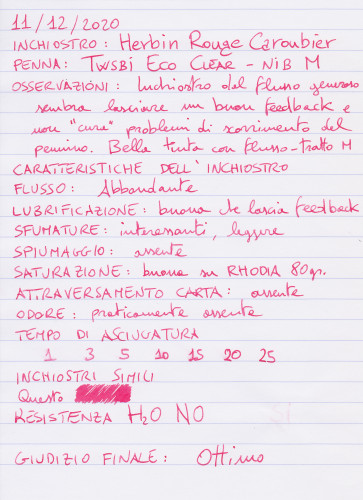 11/12/2020
INCHIOSTRO: Herbin Rouge Caroubier
PENNA: TWSBI Eco CLEAR - NIB M
OSSERVAZIONI: Inchiostro dal flusso generoso
sembra lasciare un buon feedback e
non "cura" problemi di scorrimento del
pennino. Bella tinta con flusso-tratto M
CARATTERISTICHE DELL'INCHIOSTRO
FLUSSO: Abbondante
LUBRIFICAZIONE: buona che lascia feedback
SFUMATURE: interessanti, leggere
SPIUMAGGIO: assente
SATURAZIONE: buona su RHODIA 80gr.
ATTRAVERSAMENTO CARTA: assente
ODORE: praticamente assente
TEMPO DI ASCIUGATURA
1 3 5 10 15 20 25
INCHIOSTRI SIMILI
Questo
RESISTENZA H2O NO
GIUDIZIO FINALE: Ottimo